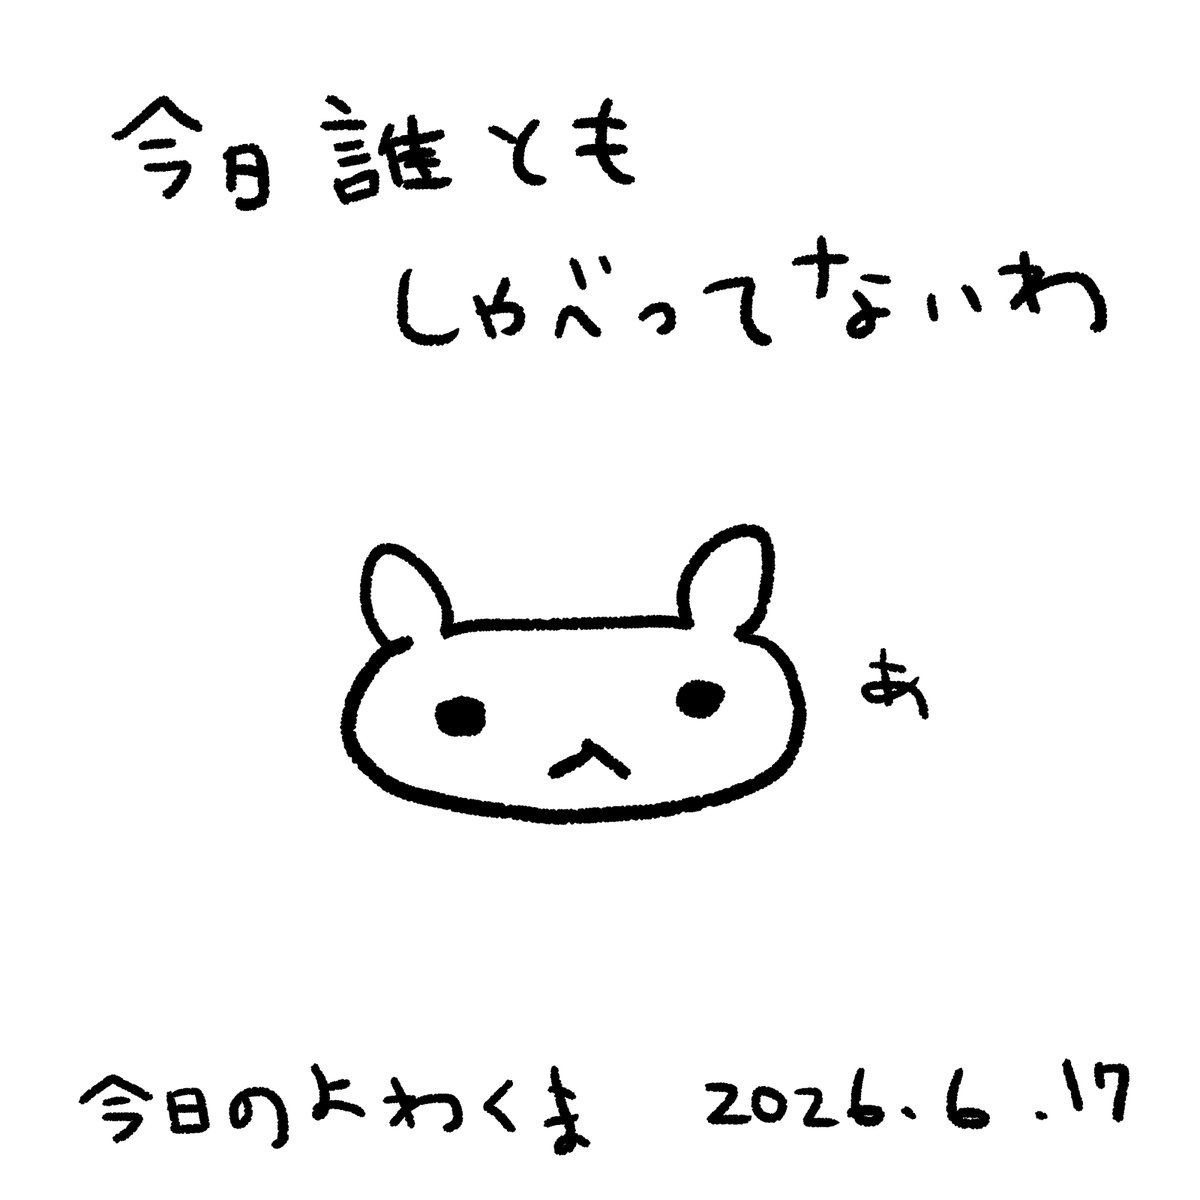 今日誰とも
しゃべってないわ
あ
今日のよわくま 2026.6.17